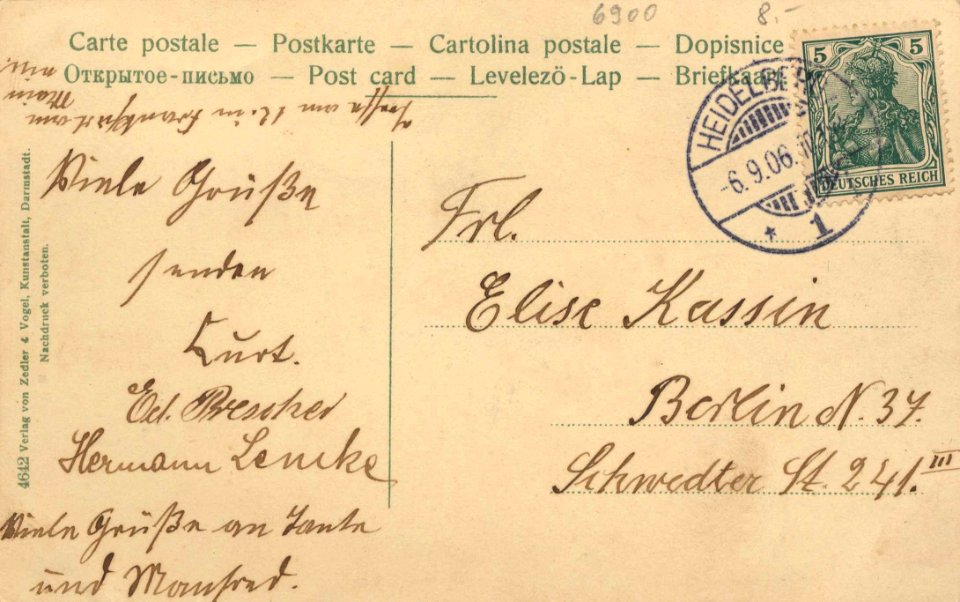 6900 8.-
Carte postale — Postkarte — Cartolina postale — Dopisnice
Открытое-письмо — Post card — Levelező-Lap — Briefkaart
HEIDELBERG
6.9.06.
* 1
5 5
DEUTSCHES REICH
am 12. in Frankfurt am
Main
Viele Grüße
senden
Kurt.
Ed. Brescher
Hermann Lemke
Viele Grüße an Tante
und Manfred.
Frl.
Elise Kassin
Berlin N. 37.
Schwedter St. 241. III
4642 Verlag von Zedler & Vogel, Kunstanstalt, Darmstadt.
Nachdruck verboten.